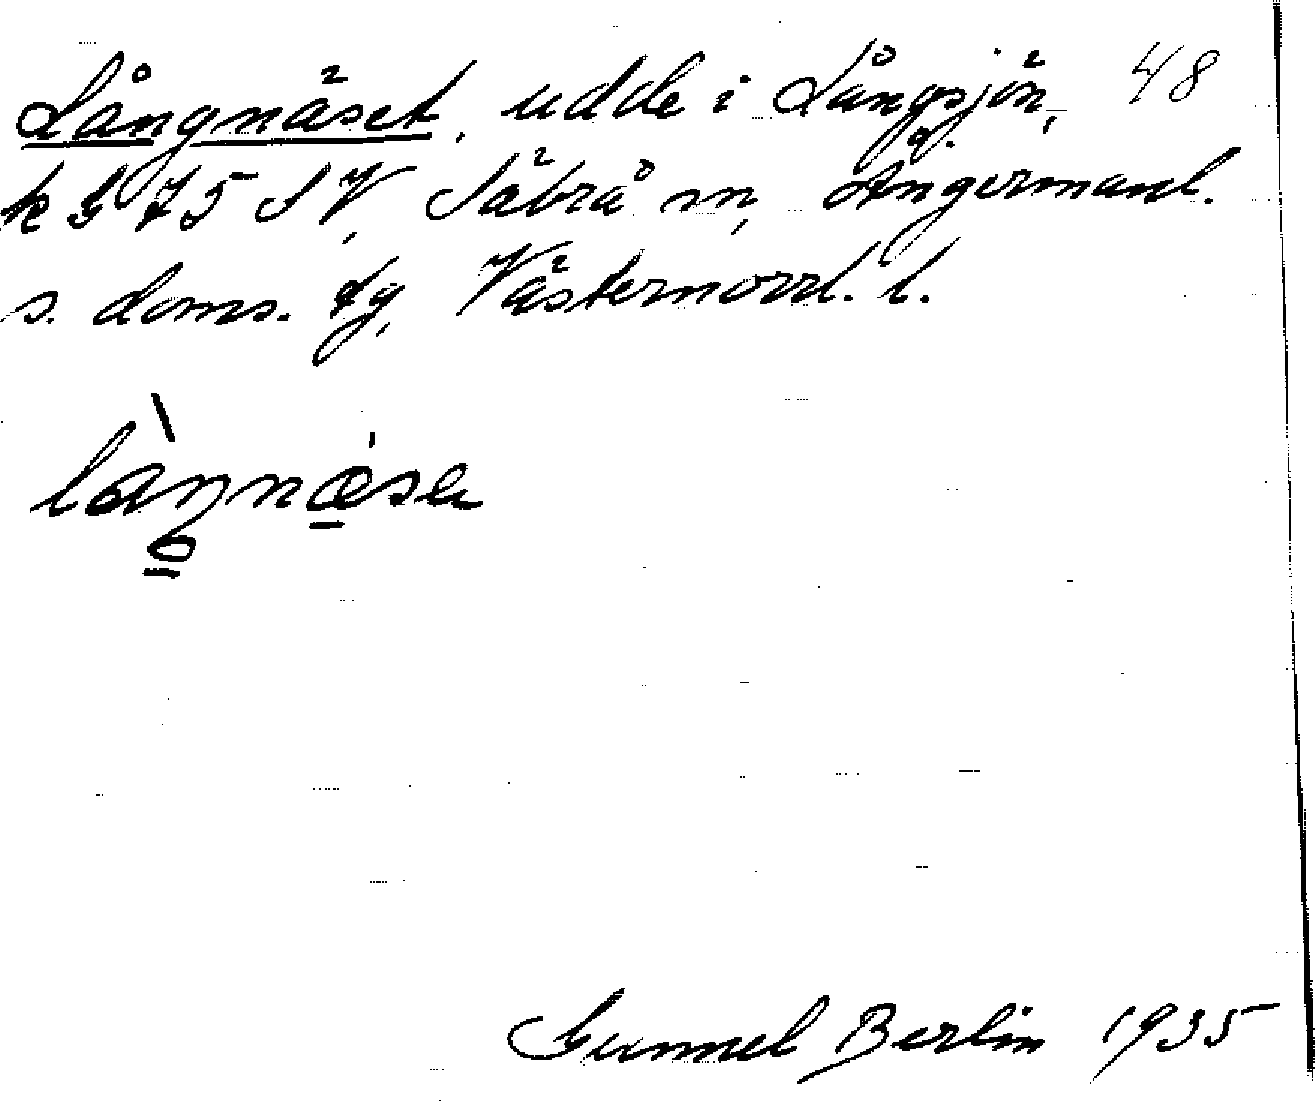 Långnäset, udde i Långsjön, 48
k G 75 SV, Säbrå sn, Ångermanl.
s. doms. tg, Västernorrl. l.
Gunnel Berlin 1935